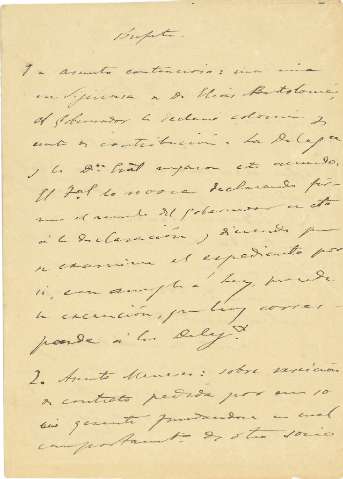 Bufete.
1 a asunto contencioso: una mina
en Sigüenza a Dn Elías Bartolomé,
el Gobernador le reclama
contribución a la Delegn
y la Dn Gral acuerdo.
El Tal lo revoca declarando firme
el acuerdo del gobernador en cto
á la declaración y diciendo que
se examine el expediente por
si, con arreglo á ley, procede
la excención, que luy corres-
ponde á la Delegn
2. Asunto Meneses: sobre rescisión
de contrato pedida por un so
cio gerente fundandose en mal
comportamto de otro socio